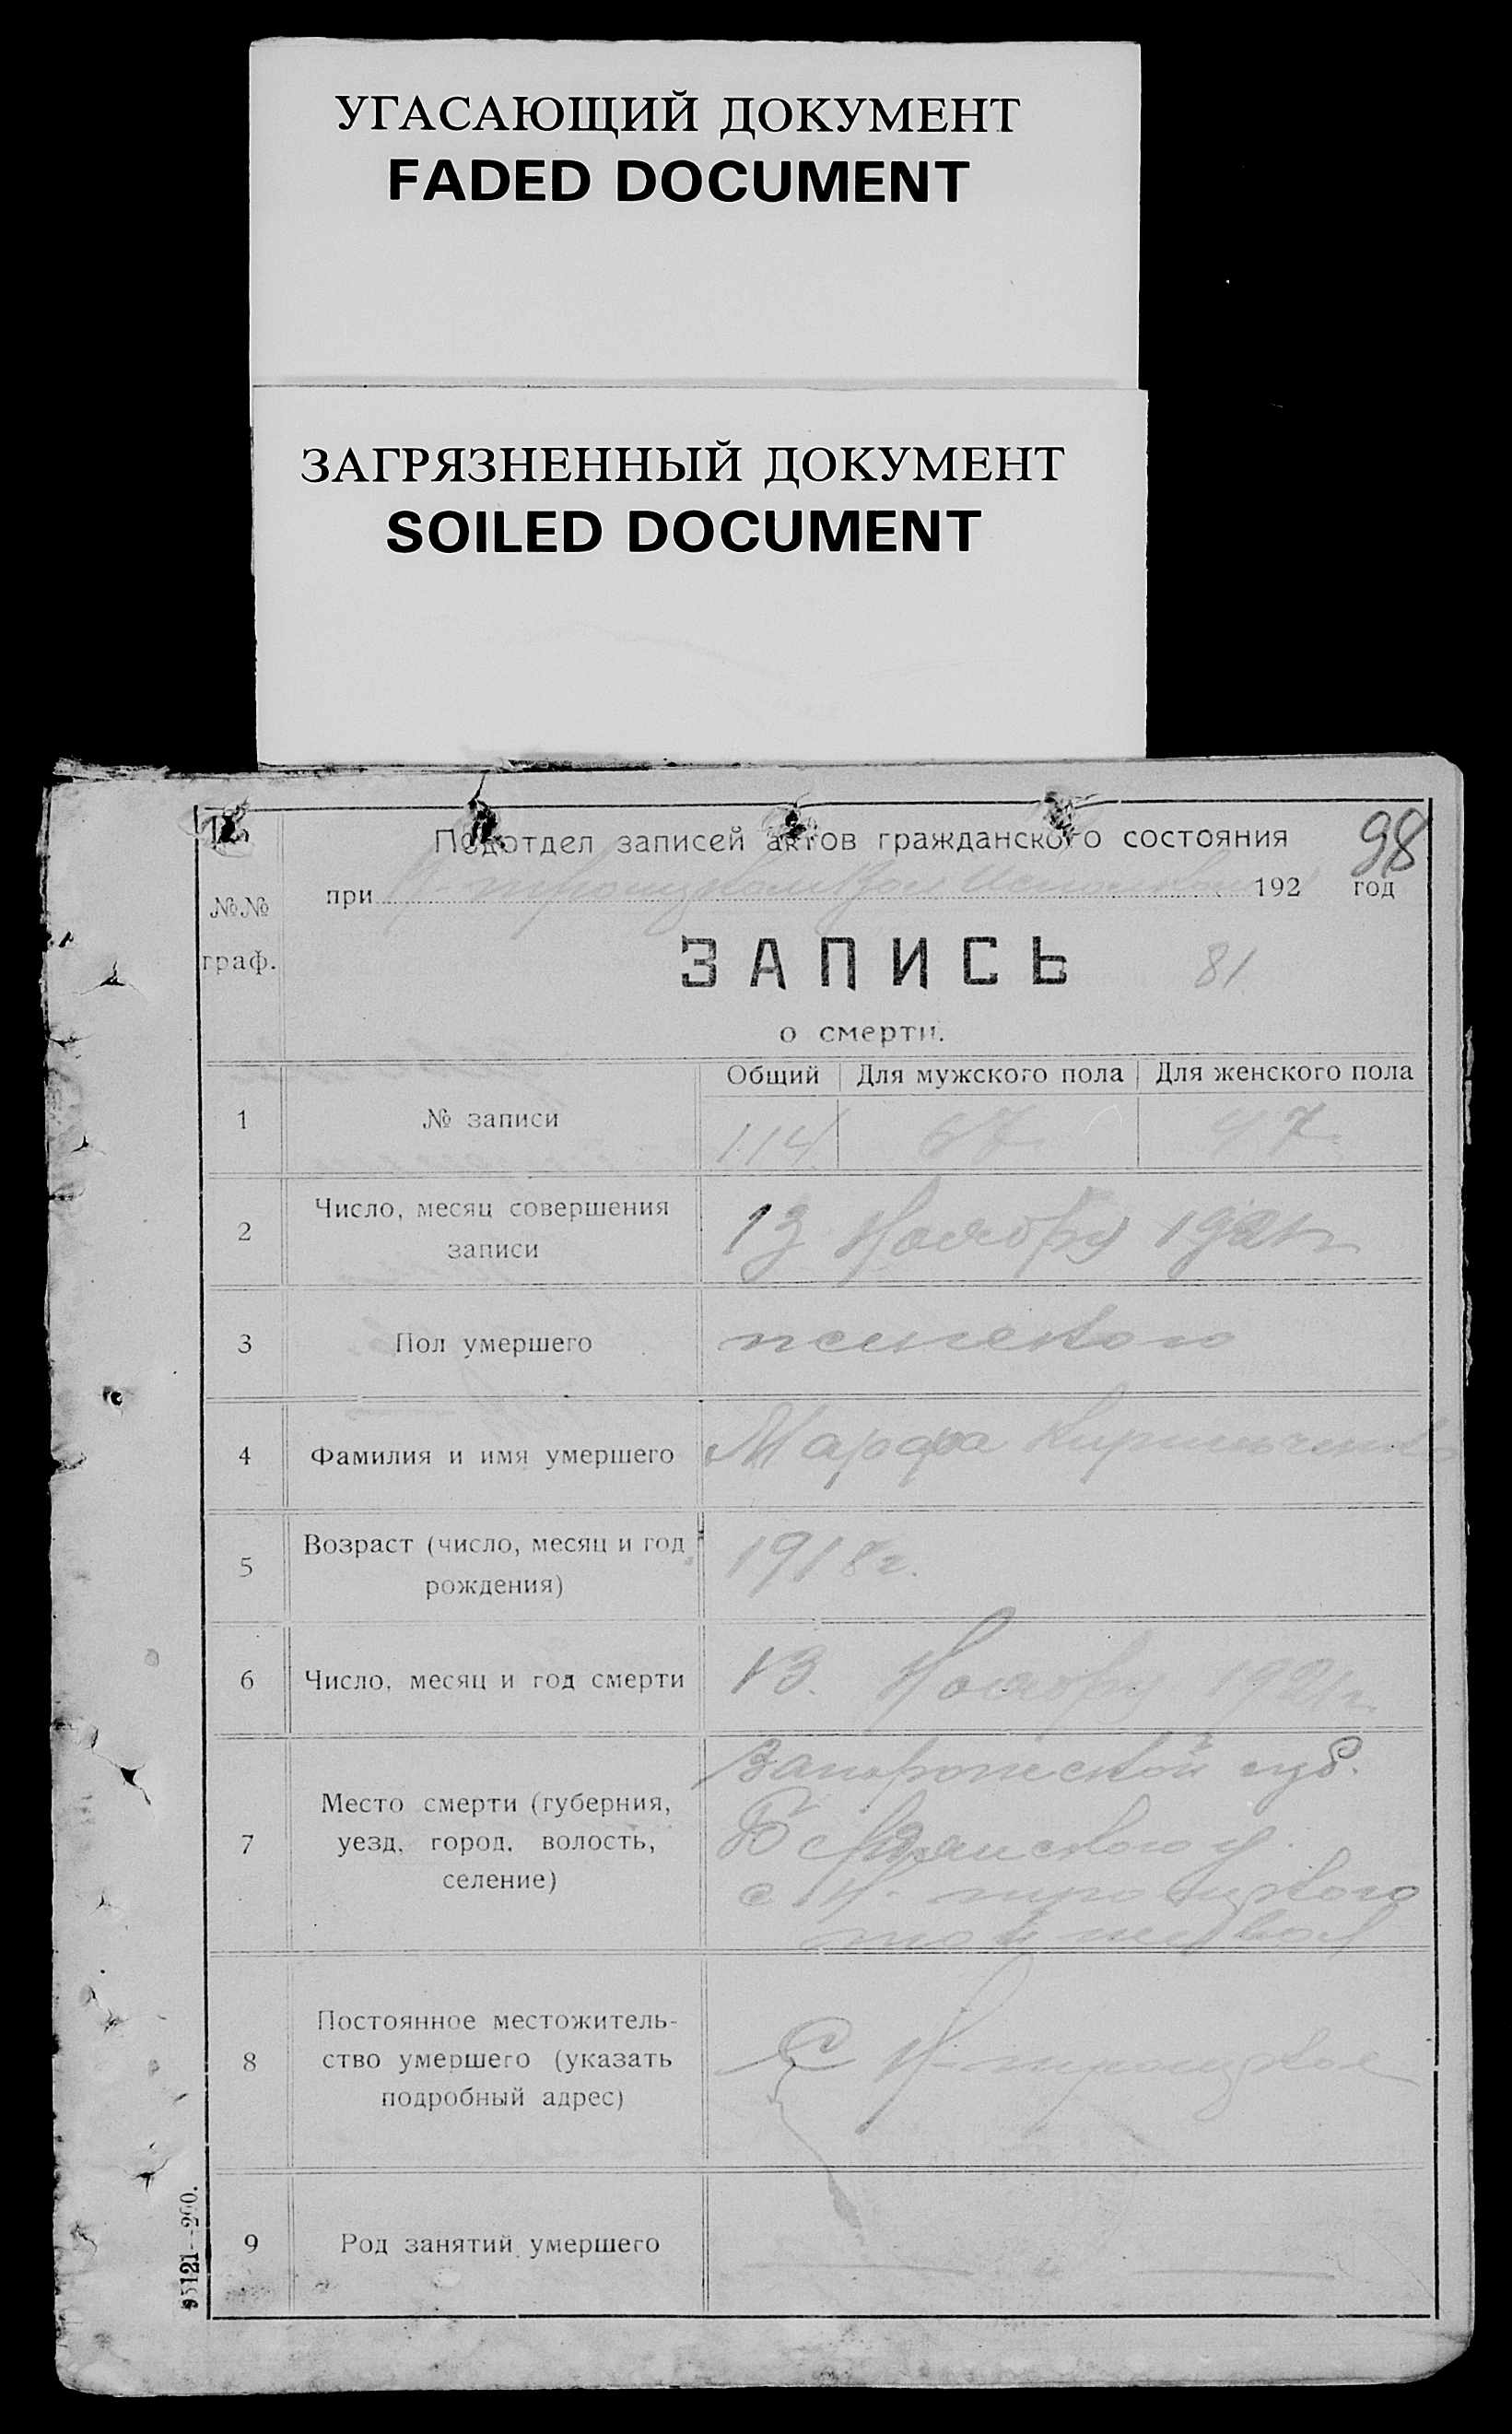 УГАСАЮЩИЙ ДОКУМЕНТ
FADED DOCUMENT
ЗАГРЯЗНЕННЫЙ ДОКУМЕНТ
SOILED DOCUMENT
Подотдел записей актов гражданского состояния
98
№№
граф.
при 192 год
ЗАПИСЬ
81
о смерти.
Общий Для мужского пола Для женского пола
1 № записи 114 67 47
2 Число, месяц совершения
записи
13 Ноября 1921г
3 Пол умершего женского
4 Фамилия и имя умершего Марфа
5 Возраст (число, месяц и год
рождения)
1918г.
6 Число, месяц и год смерти 13. Ноября 1921г.
7 Место смерти (губерния,
уезд, город, волость,
селение)
губ.
Бердянского у.
с Н-троицкого
8 Постоянное местожитель-
ство умершего (указать
подробный адрес)
С Н-троицкое
9 Род занятий умершего
95121—200.